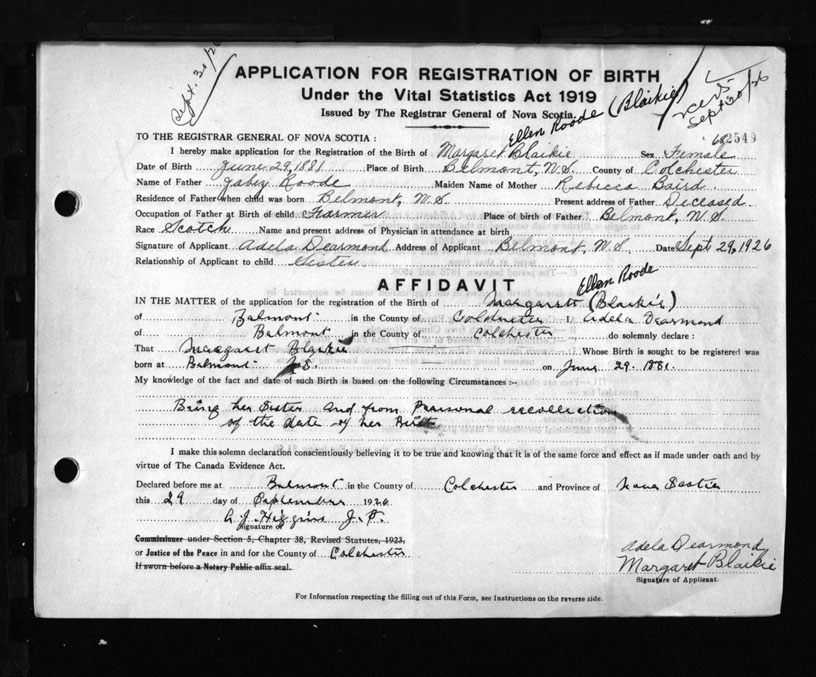 Sept. 30/26
APPLICATION FOR REGISTRATION OF BIRTH
Under the Vital Statistics Act 1919
Issued by The Registrar General of Nova Scotia.
Sept 30/26
Ellen Roode (Blaikie)
2549
TO THE REGISTRAR GENERAL OF NOVA SCOTIA:
I hereby make application for the Registration of the Birth of Margaret Blaikie Sex Female
Date of Birth June 29, 1881 Place of Birth Belmont, N.S. County of Colchester
Name of Father Roode Maiden Name of Mother Rebecca Baird
Residence of Father when child was born Belmont, N.S. Present address of Father Deceased
Occupation of Father at Birth of child Farmer Place of birth of Father Belmont, N.S.
Race Scotch Name and present address of Physician in attendance at birth
Signature of Applicant Adela Dearmond Address of Applicant Belmont, N.S. Date Sept 29, 1926
Relationship of Applicant to child Sister
AFFIDAVIT
Ellen Roode
IN THE MATTER of the application for the registration of the Birth of Margaret (Blaikie)
of Belmont in the County of Colchester I, Adela Dearmond
of Belmont in the County of Colchester do solemnly declare:
That Margaret Blaikie Whose Birth is sought to be registered was
born at Belmont N.S. on June 29, 1881.
My knowledge of the fact and date of such Birth is based on the following Circumstances:-
Being her Sister and from Personal recollection
of the date of her Birth
I make this solemn declaration conscientiously believing it to be true and knowing that it is of the same force and effect as if made under oath and by
virtue of The Canada Evidence Act.
Declared before me at Belmont in the County of Colchester and Province of Nova Scotia
this 29 day of September 1926
A. J. Higgins J.P.
Signature of
Commissioner under Section 5, Chapter 38, Revised Statutes, 1923,
or Justice of the Peace in and for the County of Colchester
If sworn before a Notary Public affix seal.
Adela Dearmond
Margaret Blaikie
Signature of Applicant.
For Information respecting the filling out of this Form, see Instructions on the reverse side.